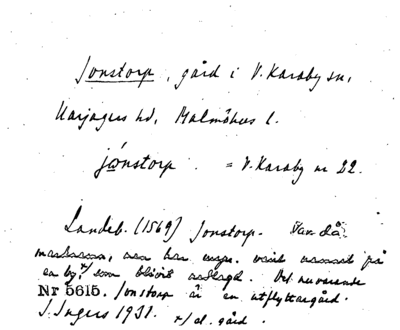 Jonstorp, gård i V. Karaby sn,
Harjagers hd, Malmöhus l.
jónstorp = V. Karaby nr 22.
Landeb. (1569) Jonstorp. Var då
namnet på
en by, x/ som blivit ödelagd. Det nuvarande
Nr 5615. Jonstorp är en utflyttargård.
I. Ingers 1931. x/ el. gård.